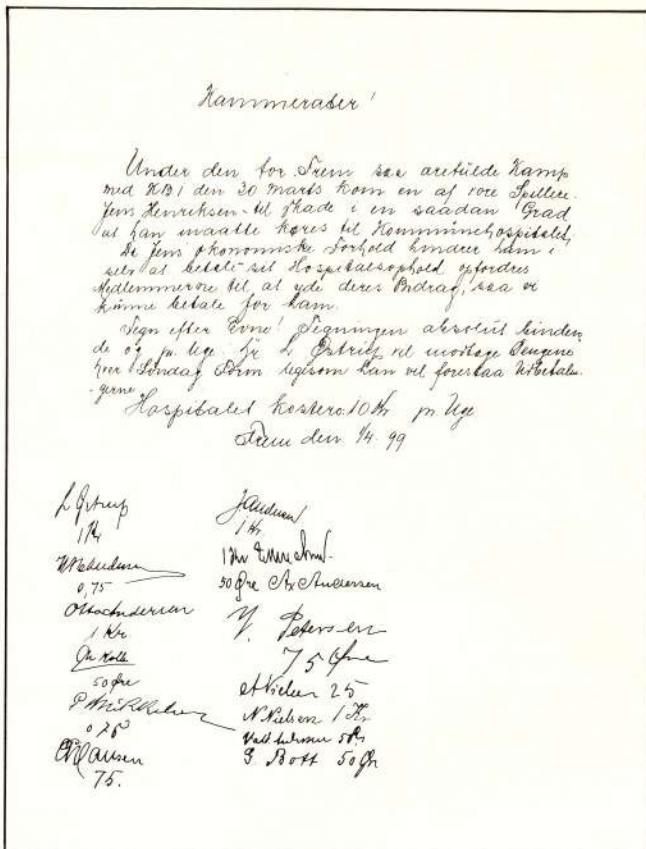 Kammerater!
Under den for Frem saa ærefulde Kamp
med KB i den 30 Marts kom en af vore Spillere
Jens Henriksen til Skade i en saadan Grad
at han maatte køres til Kommünehospitalet,
Da Jens økonomiske Forhold hindrer ham i
selv at betale sit Hospitalsophold opfordres
Medlemmerne til at yde deres Bidrag, saa vi
künne betale for ham.
Tegn efter Evne! Tegningen absolut binden
de og pr. Uge Hr L Østrup vil modtage Pengene
hver Søndag Form ligesom han vil forestaa Udbetalin-
gerne.
Hospitalet koster: 10 Kr pr Uge
Frem den 1/4 99
L Østrup
1 Kr
0,75
Otto Andersen
1 Kr
Kolle
50 Øre
P Mikkelsen
0 75
Hansen
75.
J Andersen
1 Kr
1 Kr
50 Øre Ax Andersen
V. Petersen
75 Øre
A Nielsen 25
N Nielsen 1 Kr
Vald 50
G. Bott 50 Ør